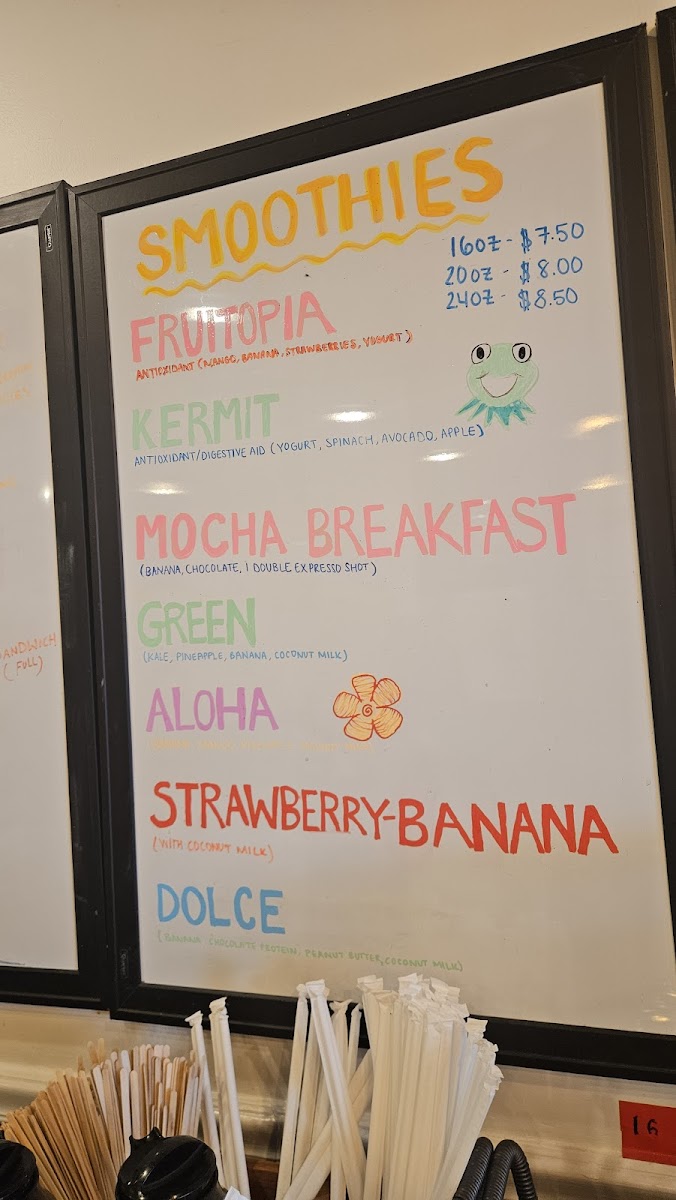 SMOOTHIES
16oz - $7.50
20oz - $8.00
24oz - $8.50
FRUITOPIA
ANTIOXIDANT (MANGO, BANANA, STRAWBERRIES, YOGURT)
KERMIT
ANTIOXIDANT/DIGESTIVE AID (YOGURT, SPINACH, AVOCADO, APPLE)
MOCHA BREAKFAST
(BANANA, CHOCOLATE, 1 DOUBLE EXPRESSO SHOT)
GREEN
(KALE, PINEAPPLE, BANANA, COCONUT MILK)
ALOHA
STRAWBERRY-BANANA
(WITH COCONUT MILK)
DOLCE
(BANANA CHOCOLATE PROTEIN, PEANUT BUTTER, COCONUT MILK)
ANDWICH
(FULL)
16